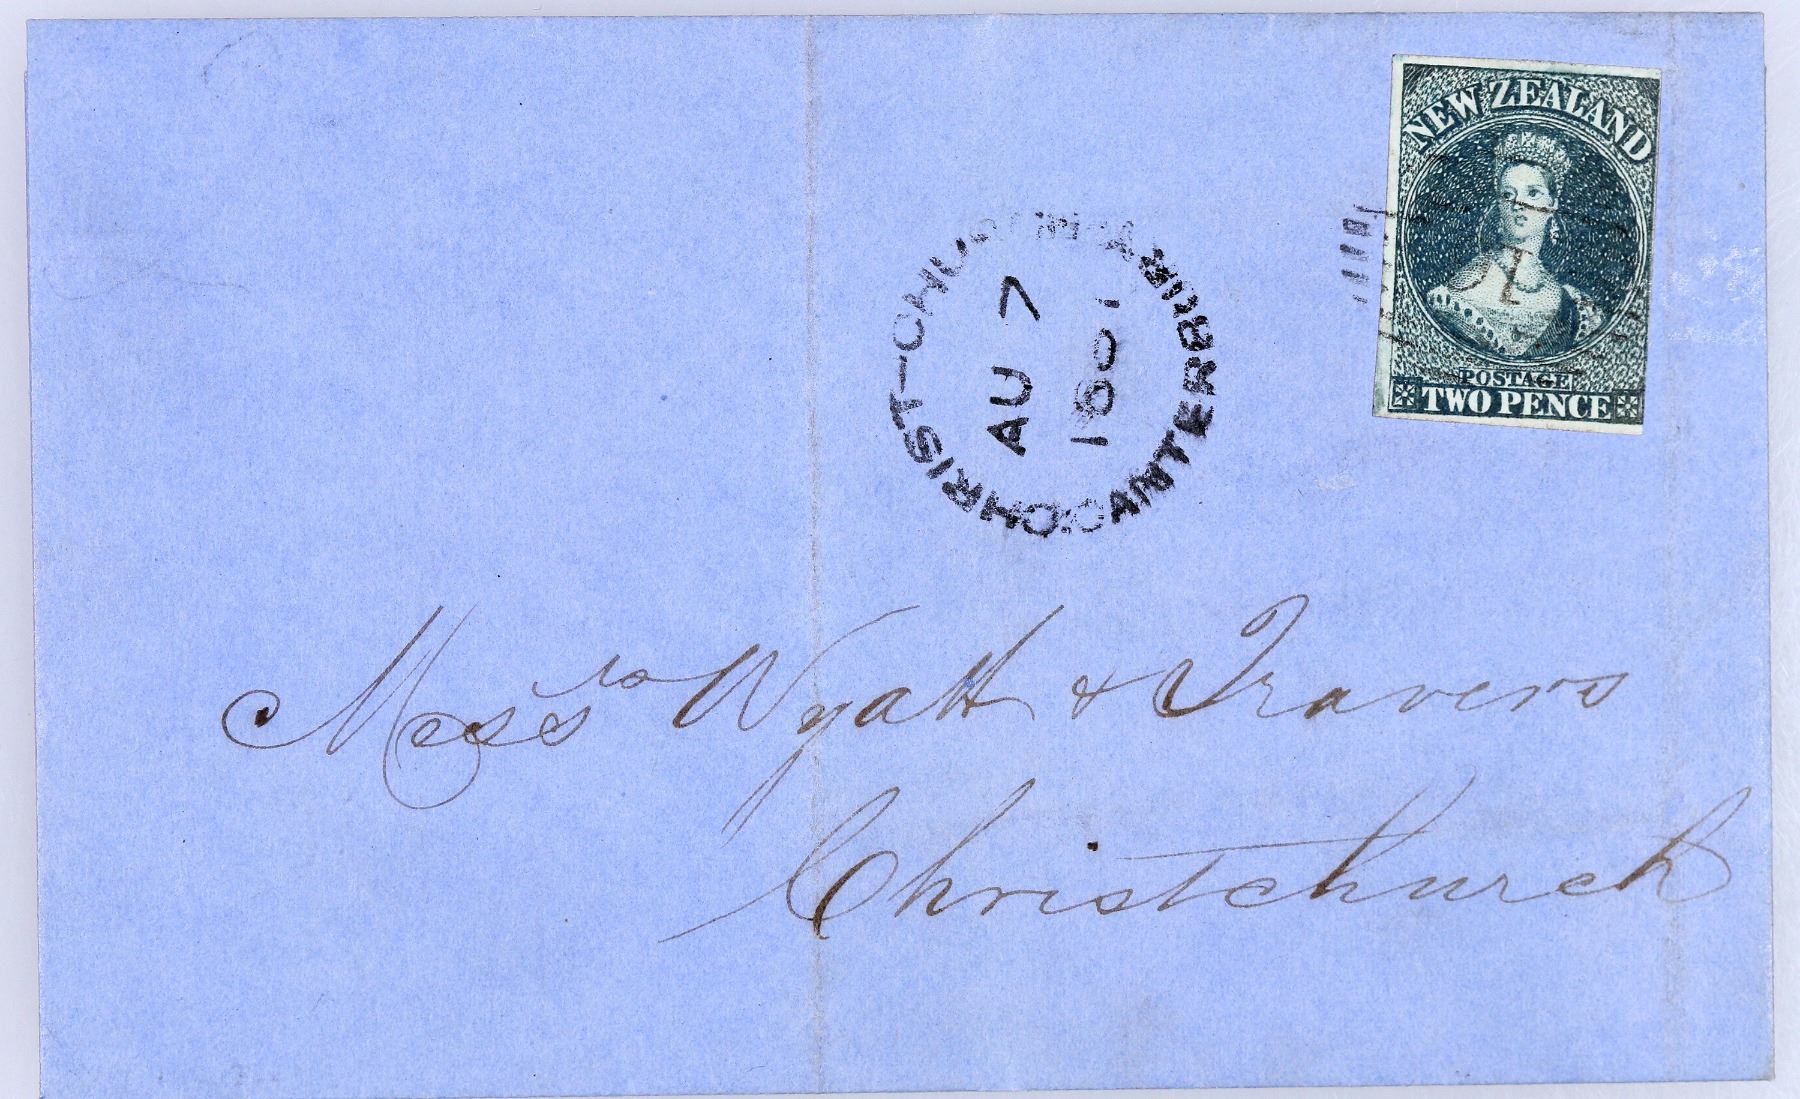 NEW ZEALAND
POSTAGE
TWO PENCE
CHRIST-CHURCH
CANTERBURY
AU 7
1861
Messrs Wyatt & Travers
Christchurch